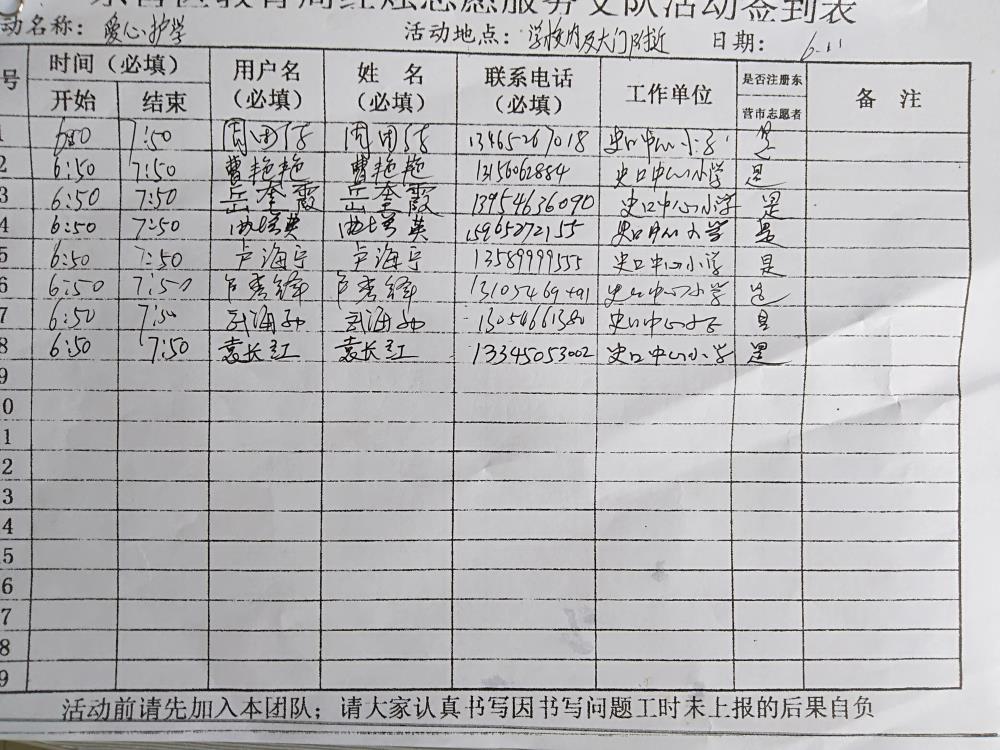 东营区教育局红烛志愿服务支队活动签到表
动名称：爱心护学 活动地点：学校内及大门附近 日期：6.11
号 时间（必填） 用户名（必填） 姓名（必填） 联系电话（必填） 工作单位 是否注册东营市志愿者 备注
开始 结束
1 7:50 史口中心小学 是
2 6:50 7:50 曹艳艳 曹艳艳 13156062884 史口中心小学 是
3 6:50 7:50 岳奎霞 岳奎霞 13954636090 史口中心小学 是
4 6:50 7:50 15965272155 史口中心小学 是
5 6:50 7:50 卢海宁 卢海宁 13589999555 史口中心小学 是
6 6:50 7:50 史口中心小学 是
7 6:50 7:50 13054661380 史口中心小学 是
8 6:50 7:50 袁长红 袁长红 13345053002 史口中心小学 是
9
0
1
2
3
4
5
6
7
8
9
活动前请先加入本团队；请大家认真书写因书写问题工时未上报的后果自负